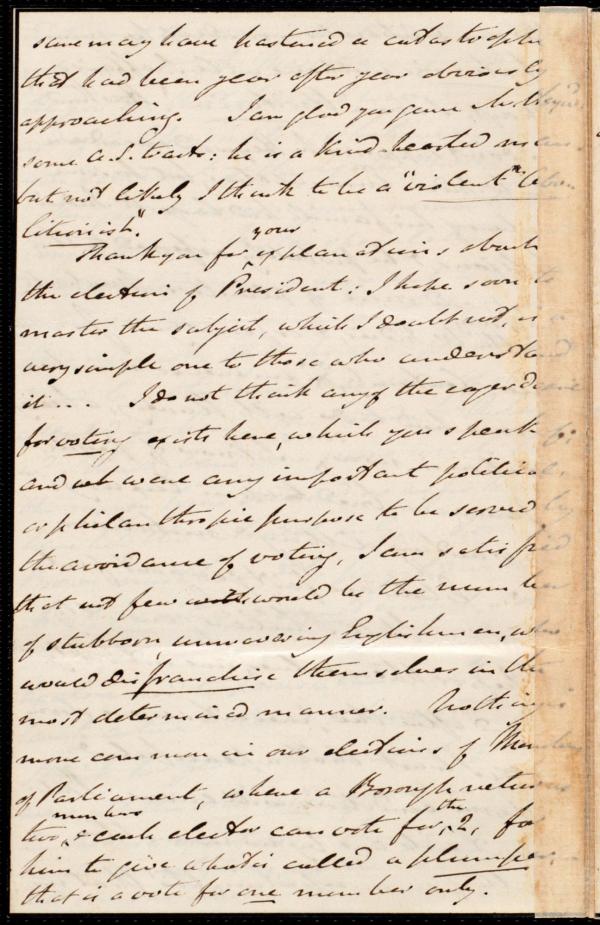 same may have hastened a catastrophe
that had been year after year obviously
approaching. I am glad you gave Mr.
some a.s. tracts: he is a kind-hearted man
but not likely I think to be a "violent" "abo-
litionist".
Thank you for your explanations about
the election of President; I hope soon to
master the subject, which I doubt not, is a
very simple one to those who understand
it... I do not think any of the eager desire
for voting exists here, which you speak of;
and were any important political
or philanthropic purpose to be served by
the avoidance of voting, I am satisfied
that not few would be the number
of stubborn, unwavering Englishmen, who
would disfranchise themselves in the
most determined manner. Nothing is
more common in our elections of Members
of Parliament, where a Borough returns
two members, & each elector can vote for the 2, for
him to give what is called a plumper,
that is a vote for one member only.